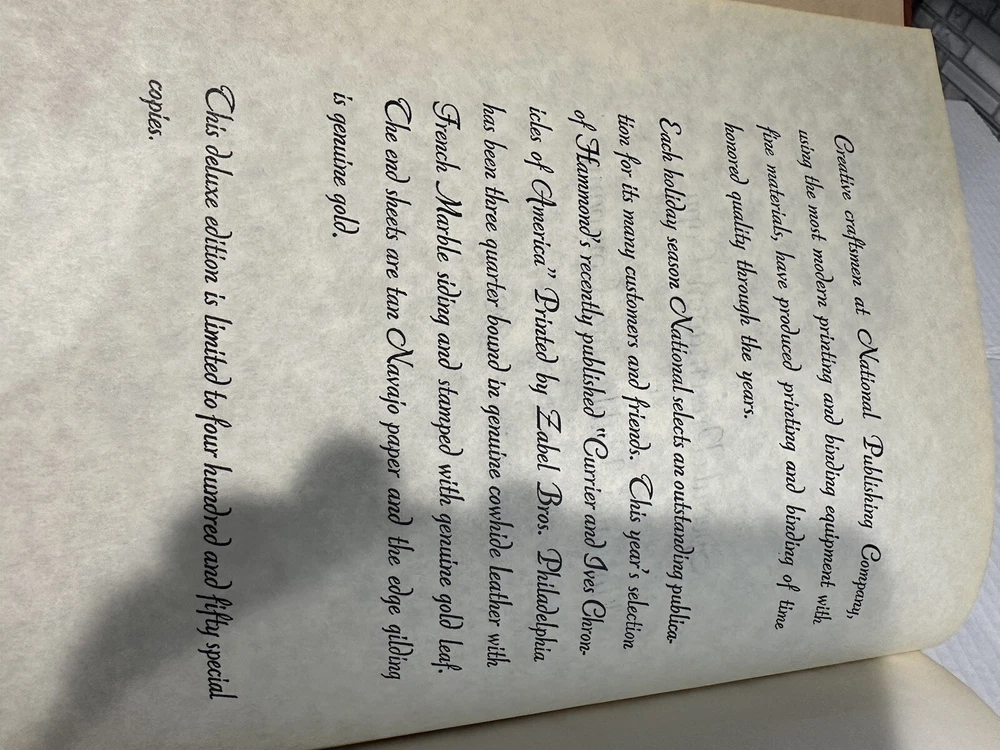 Creative craftsmen at National Publishing Company,
using the most modern printing and binding equipment with
fine materials, have produced printing and binding of time
honored quality through the years.
Each holiday season National selects an outstanding publica-
tion for its many customers and friends. This year's selection
of Hammond's recently published "Currier and Ives Chron-
icles of America" Printed by Zabel Bros. Philadelphia
has been three quarter bound in genuine cowhide leather with
French Marble siding and stamped with genuine gold leaf.
The end sheets are tan Navajo paper and the edge gilding
is genuine gold.
This deluxe edition is limited to four hundred and fifty special
copies.